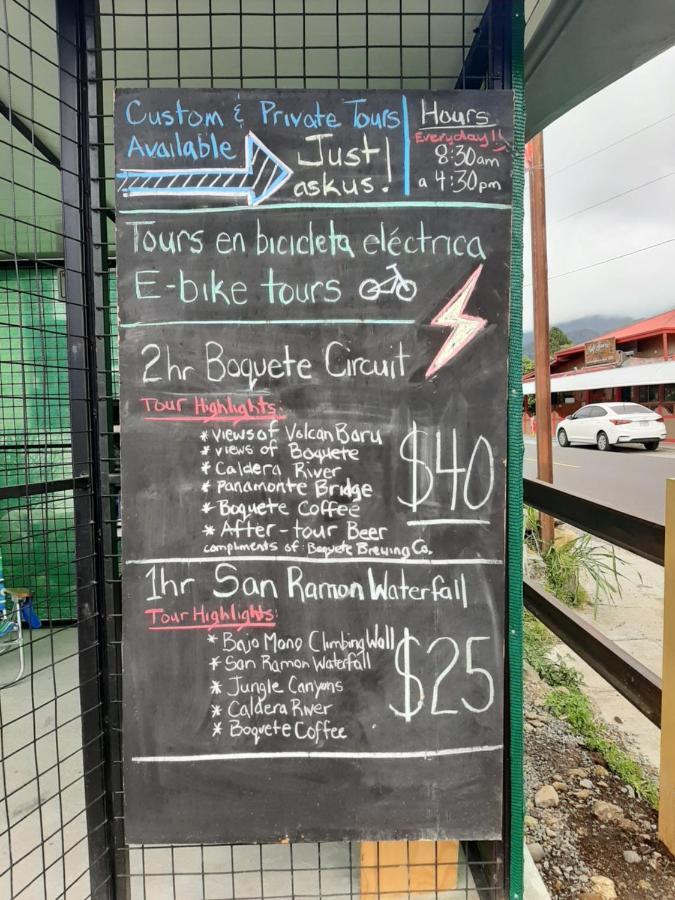 Custom & Private Tours
Available
Just
ask us!
Hours
Everyday!!
8:30am
a 4:30pm
Tours en bicicleta eléctrica
E-bike tours
2hr Boquete Circuit
Tour Highlights:
* views of Volcan Baru
* views of Boquete
* Caldera River
* Panamonte Bridge
* Boquete Coffee
* After-tour Beer
compliments of: Boquete Brewing Co.
$40
1hr San Ramon Waterfall
Tour Highlights:
* Bajo Mono Climbing Wall
* San Ramon Waterfall
* Jungle Canyons
* Caldera River
* Boquete Coffee
$25